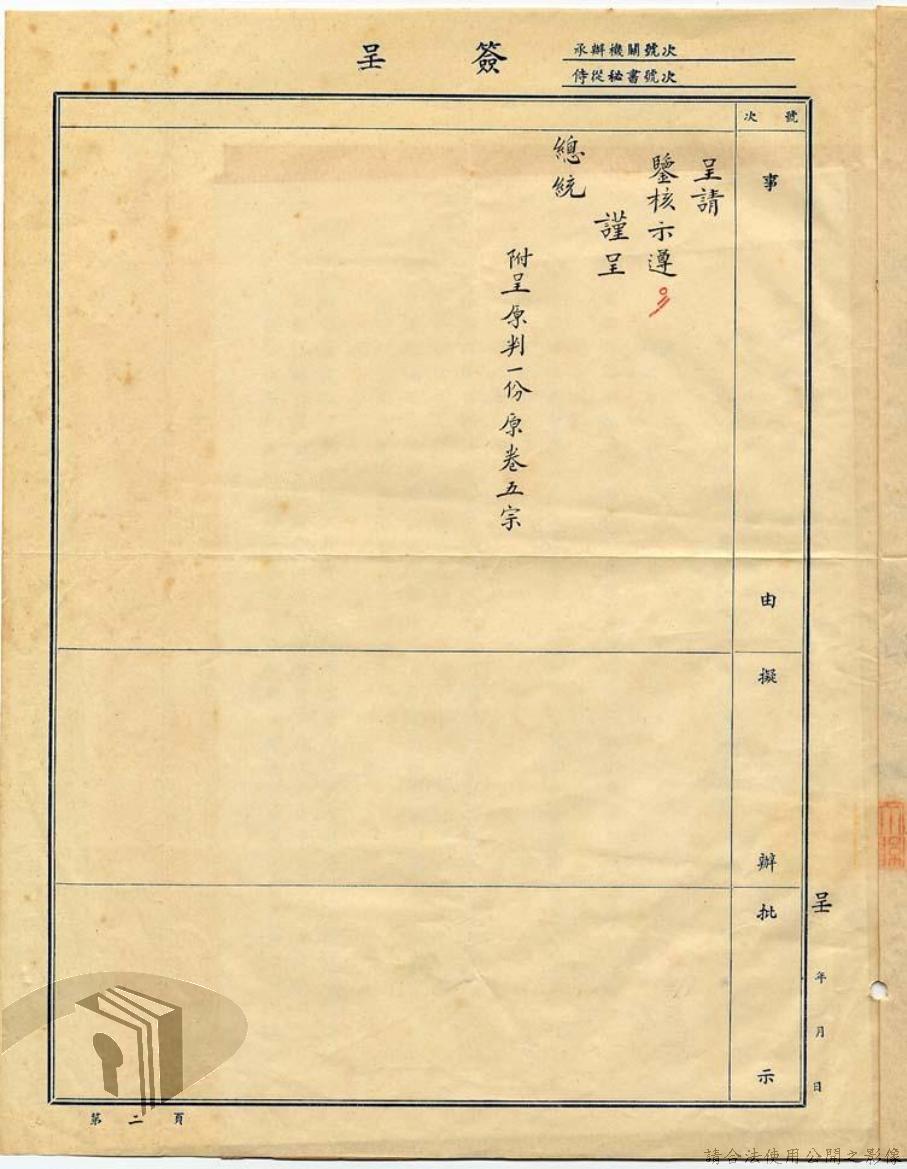 簽呈
承辦機關號次
侍從秘書號次
號次
事由
呈請
鑒核示遵
謹呈
總統
附呈原判一份原卷五宗
擬辦
批示
呈 年 月 日
第二頁
請合法使用公開之影像